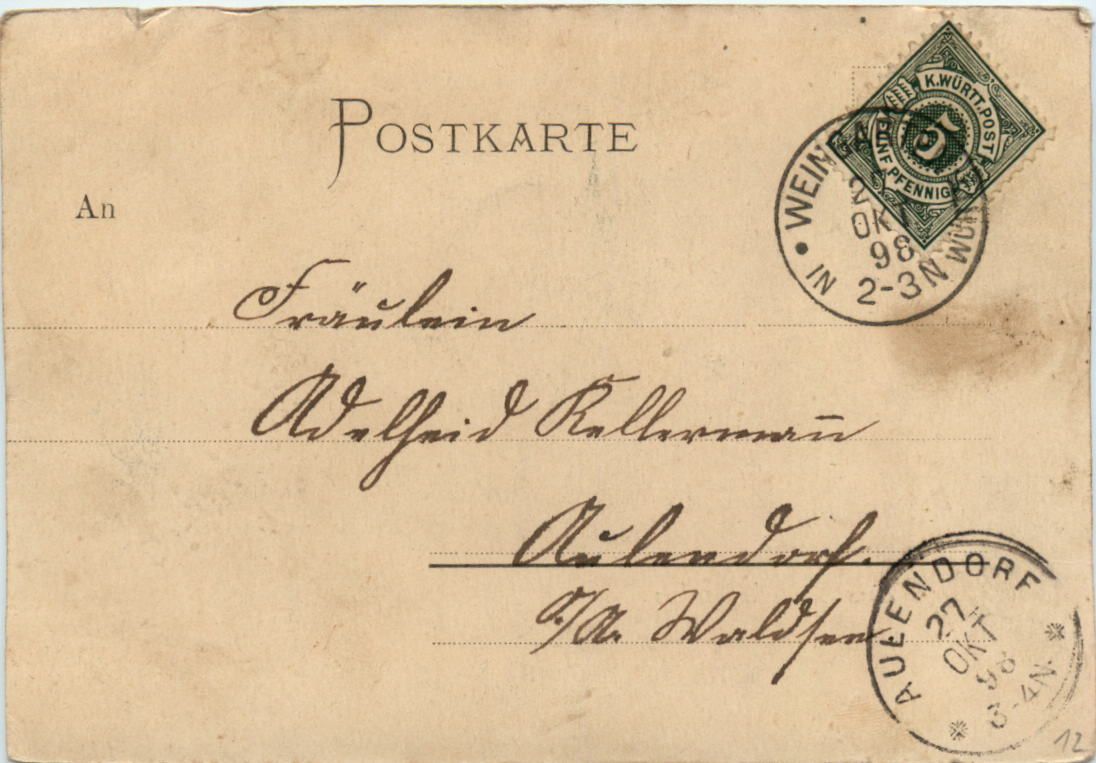 POSTKARTE
K.WÜRTT.POST
5
FÜNF PFENNIG
WEINGA
27
OKT
98
2-3N
IN WÜRTT
An
Fräulein
Adelheid Kellermañ
Aulendorf.
O/A. Waldsee
AULENDORF
27
OKT
98
3-4N
12